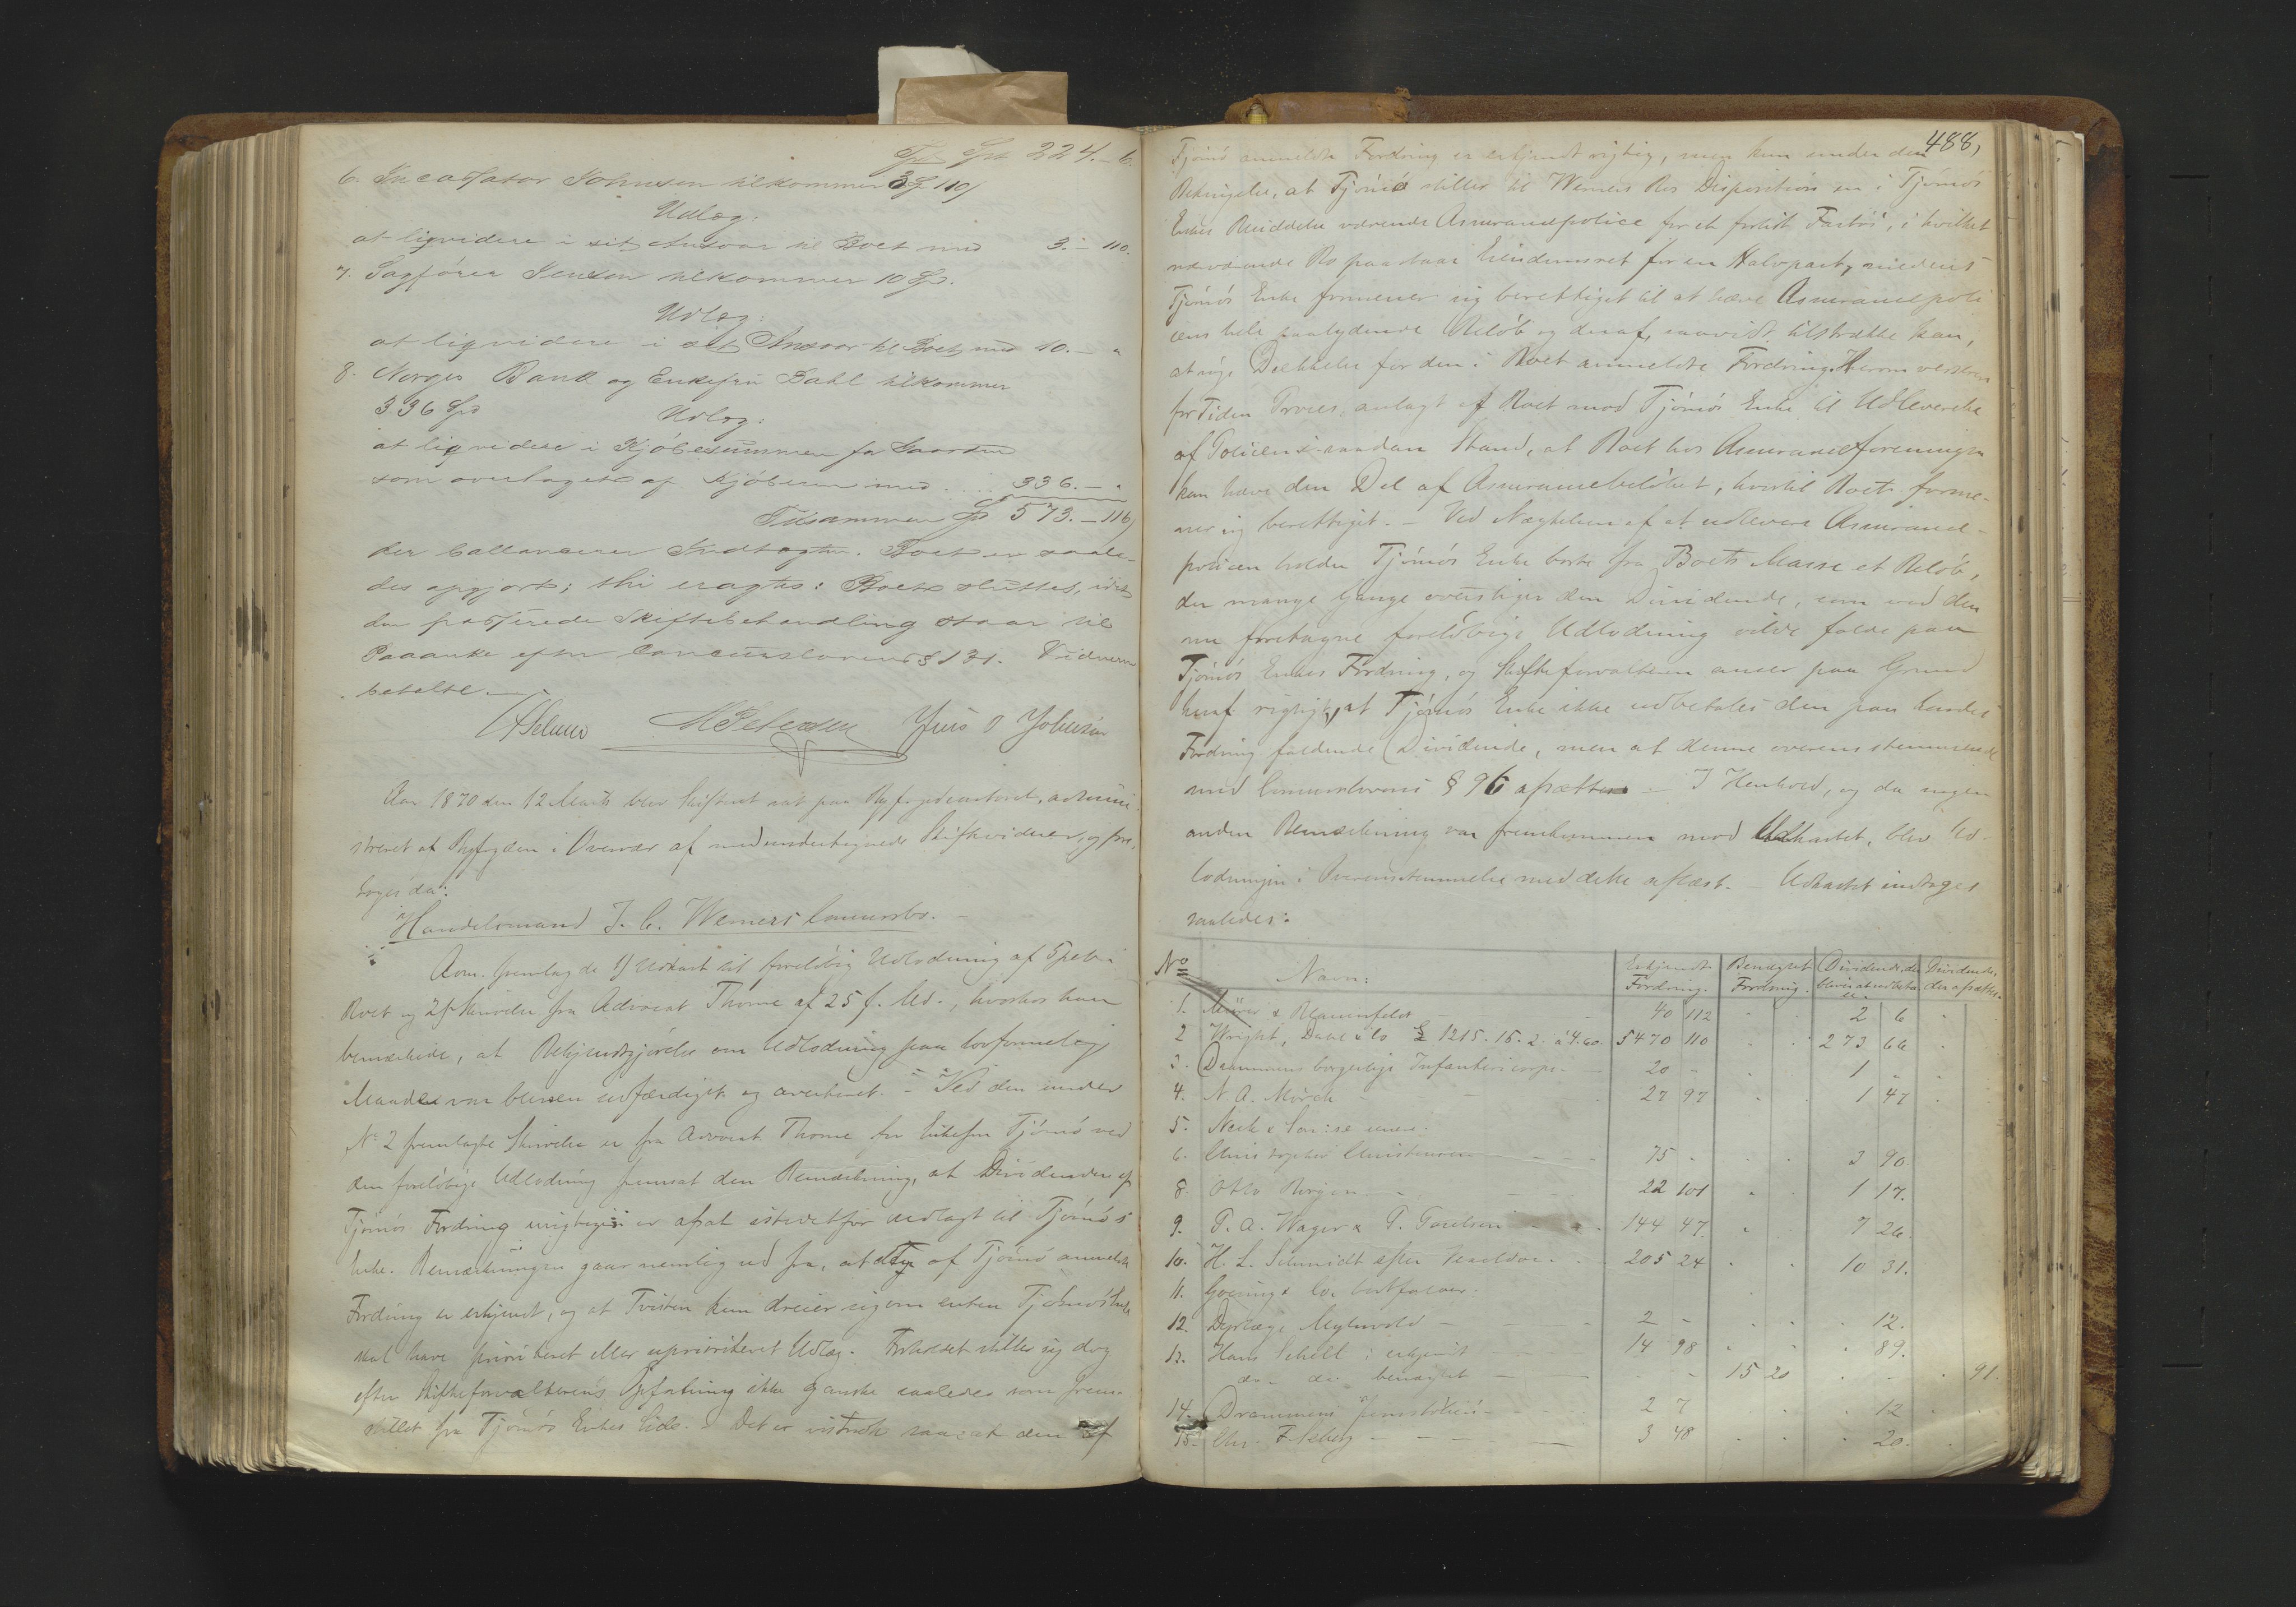 Tpt Spd 224. - 6.
6. Incassator Johnsen tilkommer 3 Spd 110/
Udlæg:
at liqvidere i sit Ansvar til Boet med 3. - 110.
7. Sagfører Jensen tilkommer 10 Spd.
Udlæg:
at liqvidere i sit Ansvar til Boet med 10. - "
8. Norges Bank og Enkefru Dahl tilkommer
336 Spd Udlæg:
at liqvidere i Kjøbesummen for Gaarden
som overtaget af Kjøberen med 336. - "
Tilsammen Spd 573. - 116/
der ballancerer Indtægten. Boet er saale-
des opgjort; thi eragtes: Boet sluttet, idet
den passerede Skiftebehandling staar til
Paaanke efter Concurslovens § 131. Vidnerne
betalte.
M Petersen Jens O Johnsen
Aar 1870 den 12 Marts blev Skifteret sat paa Byfogedcontoret, admini-
streret af Byfogden i Overvær af medundertegnede Skiftevidner, og fore-
toges da:
Handelsmand J. C. Werners Concursbo. -
Adm. fremlagde 1) Udkast til foreløbig Udlodning af 5 pct. i
Boet og 2) Skrivelse fra Advocat Thorne af 25 f. Md., hvorhos han
bemærkede, at Bekjendtgjørelse om Udlodning paa lovformelig
Maade var bleven udfærdiget og averteret. - Ved den under
No 2 fremlagte Skrivelse er fra Advocat Thorne for Enkefru Tjømø ved
den foreløbige Udlodning fremsat den Bemærkning, at Dividenden af
Tjømøs Fordring urigtigen er afsat istedetfor udlagt til Tjømøs
Enke. Bemærkningen gaar nemlig ud fra, at den af Tjømø anmeldte
Fordring er erkjendt, og at Tvisten kun dreier sig om enten Tjømøs Enke
skal have prioriteret eller uprioriteret Udlæg. Forholdet stiller sig dog
efter Skifteforvalterens Opfatning ikke ganske saaledes som frem-
stillet fra Tjømøs Enkes Side. Det er vistnok saa, at den af
488,
Tjømø anmeldte Fordring er erkjendt rigtig, men kun under den
Betingelse, at Tjømø stiller til Werners Bos Disposition en i Tjømøs
Enkes Besiddelse værende Assurancepolice for et forlist Fartøi, i hvilket
nærværende Bo paastaar Eiendomsret for en Halvpart, medens
Tjømøs Enke formener sig berettiget til at hæve Assurancepoli-
cens hele paalydende Beløb og deraf, saavidt tilstrække kan,
at søge Dækkelse for den i Boet anmeldte Fordring. Herom verserer
for Tiden Proces, anlagt af Boet mod Tjømøs Enke til Udleverelse
af Policen i saadan Stand, at Boet hos Assuranceforeningen
kan hæve den Del af Assurancebeløbet, hvortil Boet forme-
ner sig berettiget. - Ved Nægtelsen af at udlevere Assurance-
policen holder Tjømøs Enke borte fra Boets Masse et Beløb,
der mange Gange overstiger den Dividende, som ved den
nu foretagne foreløbige Udlodning vilde falde paa
Tjømøs Enkes Fordring, og Skifteforvalteren anser paa Grund
heraf rigtigt, at Tjømøs Enke ikke udbetales den paa hendes
Fordring faldende Dividende, men at denne overensstemmende
med Concurslovens § 96 afsættes. - I Henhold, og da ingen
anden Bemærkning var fremkommen mod Udkastet, blev Ud-
lodningen i Overensstemmelse med dette aflæst. - Udkastet indtages
saaledes:
No Navn: Erkjendt Fordring. Benægtet Fordring. Dividende, der bliver at udbetale. Dividende, der afsættes.
1. & Blauenfeldt 40 112 2 6
2 Wright, Dahl & Co £ 1215. 15. 2 à 4.60. 5470 110 273 66
3. Drammens borgerlige Infantericorps - 20 - 1 -
4. N. A. Mørch - 27 97 1 47
5. Neck & Co
6. Christopher Christensen 75 - 3 90.
8. Otto Borgen 22 101 1 17.
9. P. A. Wager & P. Paulsen 144 47. 7 26.
10. H. L. Schmidt efter 205 24 10 31.
11. Goening & Co bortfalder.
12. Dyrlæge Myhrvold - 2 - 12.
13. Hans Schell: erkjendt 14 98 89.
do - do benægtet - - 15 20 91.
14. Drammens 2 7 12
15. Chr. F 3 48 20.